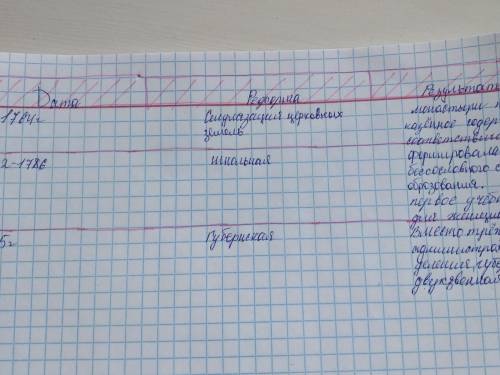 Дата Реформа Результат
1764г Секуляризация церковных земель монастыри
казённое содер
соответственно
2-1786 школьная формировала
бессословного с
образования.
первое учебн
для женщин
5г Губернская Вместо трёх
администрат
деления, губе
двухзвенная